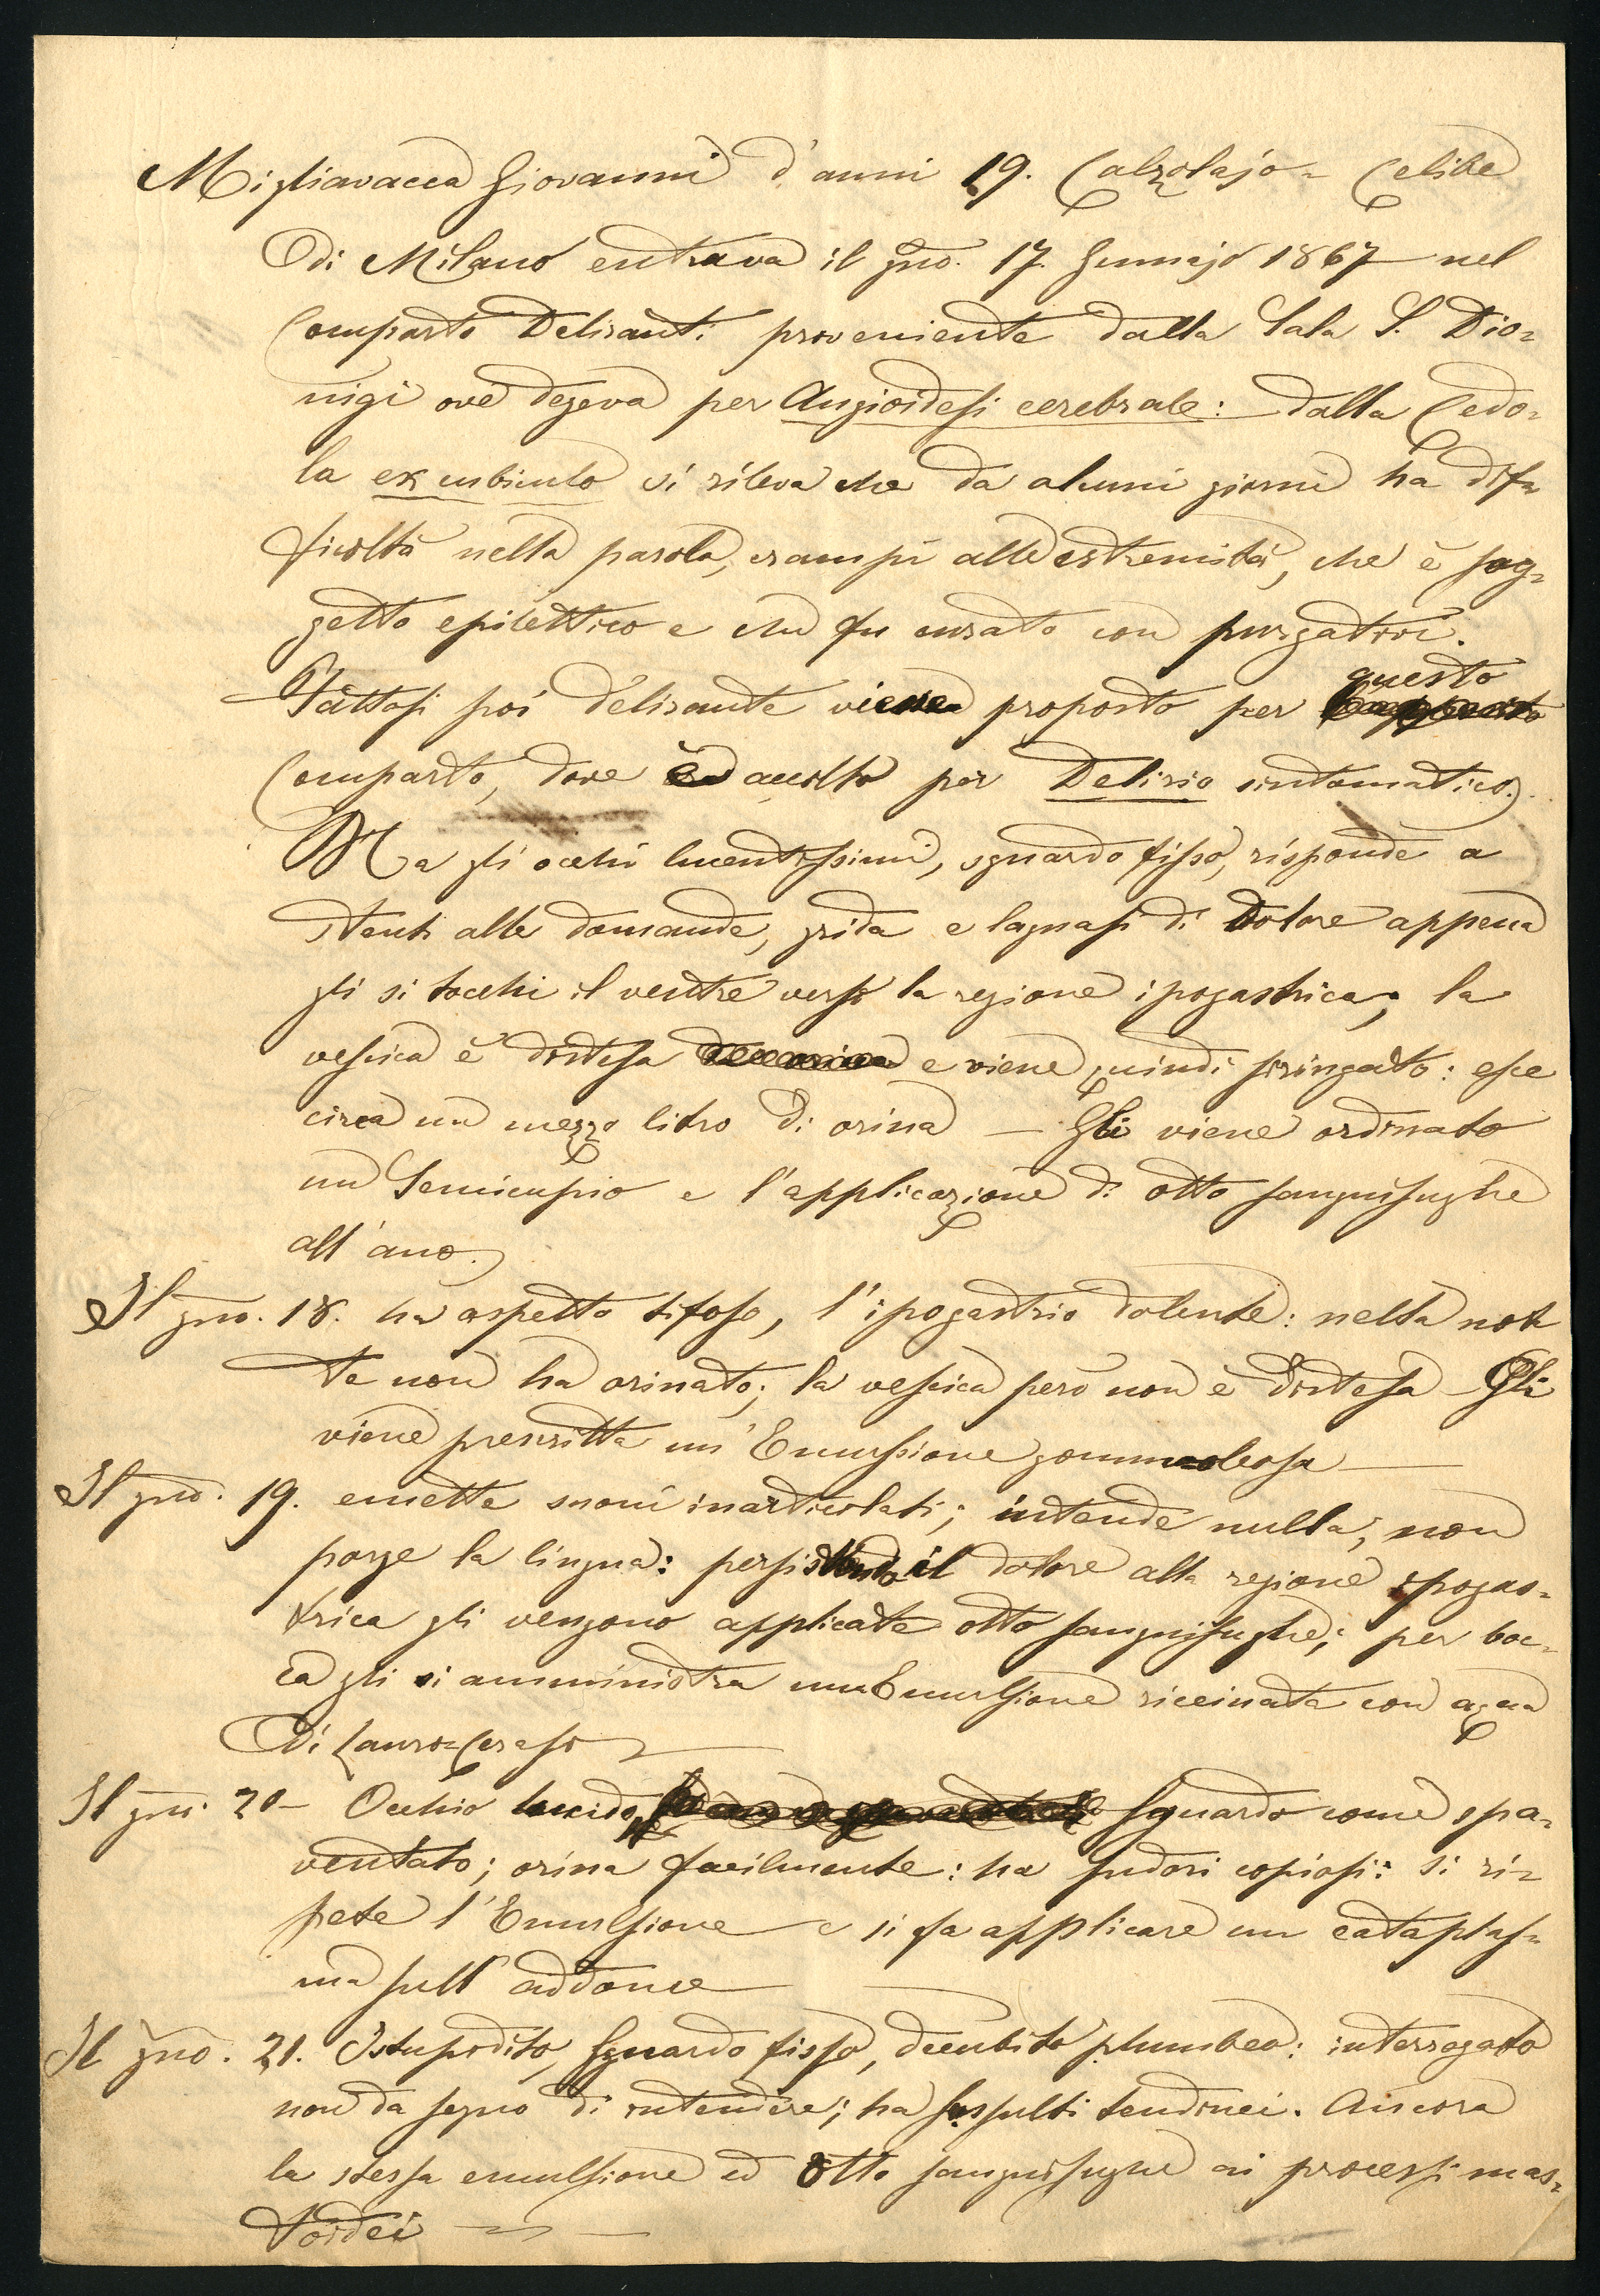 Migliavacca Giovanni d'anni 19. Calzolajo - Celibe
di Milano entrava il gno. 17. Gennajo 1867 nel
Comparto Deliranti proveniente dalla Sala S. Dio-
nigi ove degeva per Angioidesi cerebrale: dalla Cedo-
la ex cubiculo si rileva che da alcuni giorni ha dif-
ficoltà nella parola, crampi alle estremità, che è sog-
getto epilettico e che fu curato con purgativi.
questo
Fattosi poi delirante viene proposto per
Comparto, dove è accolto per Delirio sintomatico.
Ha gli occhi lucentissimi, sguardo fisso, risponde a
stenti alle domande, grida e lagnasi di dolore appena
gli si tocchi il ventre verso la regione ipogastrica; la
vescica è distesa e viene quindi siringato: esce
circa un mezzo litro di orina — Gli viene ordinato
un Semicupio e l'applicazione di otto sanguisughe
all'ano.
Il gno. 18. ha aspetto tifoso, l'ipogastrio dolente: nella not
te non ha orinato; la vescica però non è distesa - Gli
viene prescritta un'Emulsione gommoleosa —
Il gno. 19. emette suoni inarticolati; intende nulla, non
porge la lingua: persistendo il dolore alla regione ipogas-
trica gli vengono applicate otto sanguisughe; per boc-
ca gli si amministra una Emulsione riccinata con acqua
di Lauro-Ceraso —
Il gno. 20 - Occhio lucido, Sguardo come spa-
ventato; orina facilmente: ha sudori copiosi: si ri-
pete l'Emulsione e si fa applicare un cataplas-
ma sull'addome —
Il gno. 21. Istupidito, sguardo fisso, decubito plumbeo: interrogato
non da segno di intendere; ha sussulti tendinei. Ancora
la stessa emulsione ed otto sanguisughe ai processi mas-
toidei —